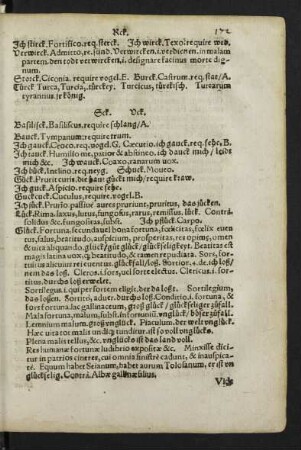 Rck. 172
Ich stirck. Fortifico. req. sterck. Ich wirck. Texo: require web.
Verwirck. Admitto, re. sünd. Verwircken. i. verdienen, in malam
partem. den todt verwircken, i. designare facinus morte dig-
num.
Storck. Ciconia. require vogel. E. Burck. Castrum. req. stat/ A.
Türck Turca, Turcia, türckey. Turcicus, türckisch. Turcarum
tyrannus je könig.
Sck. Vck.
Basilisck. Basiliscus. require schlang/ A.
Bauck. Tympanum: require trum.
Ich gauck. Geoco. req. vogel. G. Cæcutio. ich gauck. req. sehe, B.
Ich tauck. Humilio me, patior & abstineo, ich dauck mich/ leidt
mich &c. Ich wauck. Coaxo, ranarum vox.
Ich bück. Inclino. req. neyg. Schuck. Moueo.
Gück. Pruriturit. die haut gückt mich/ require kraw.
Ich guck. Aspicio. require sehe.
Guckguck. Cuculus, require vogel, B.
Ich jück. Prurio passiue autem prurit, pruritus, das jücken.
Lück. Rima, laxus, lutus, fungosus, rarus, remissus. lück. Contrà
solidus &c. fungositas, subst. Ich pflück. Carpo.
Glück. Fortuna, secundauel bona fortuna, fœlicitas, fœlix euen
tus, salus, beatitudo, auspicium, prosperitas, res opimę, omen
& euitæ aliquando, glück/ güt glück/ glückseligkeyt. Beatitas est
magis latina vox q̃ beatitudo, & tamen repudiata. Sors, for-
tuitus uel alicuius rei euentus. glücksfall/ loß. Sortior, i. de ich loß/
nem das loß. Cleros, i. sors, qui sorte electus. Clericus. i. sor-
tinus, durchs loß erwelet.
Sortilegus. i. qui per sortem eligit, der da loßt. Sortilegium,
das losten. Sortitò, aduer. durchs loß. Conditio, i. fortuna, &c
fort fortuna, lac gallinaceum, groß glück/ glückseliger züfall &c.
Mala fortuna, malum, subst. infortunium. vnglück/ böser züfall.
Lemnium malum, groß vnglück. Piaculum. der welt vnglück.
Hæc uita tot malis undiq̃ tunditur. ist so voll vnglücks.
Plena malis tellus, &c. vnglücks ist das land voll.
Res humanæ fortunæ ludibrio expositæ &c. Minxisse dici-
tur in patrios cineres, cui omnia sinistrè cadunt, & inauspica-
tè. Equum habet Seianum, habet aurum Tolosanum, er ist vn
glückselig. Contrà. Albæ gallinæ filius.